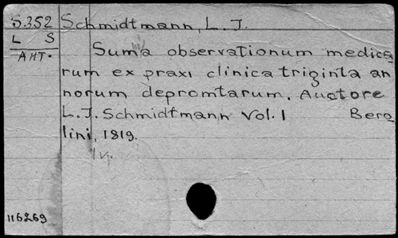 S.352 Schmidtmann, L. J.
L S
AHT.
Suma observationum medica
rum ex praxi clinica triginta an
norum depromtarum. Auctore
L. J. Schmidtmann Vol. I Bero
lini, 1819.
1 v.
116269